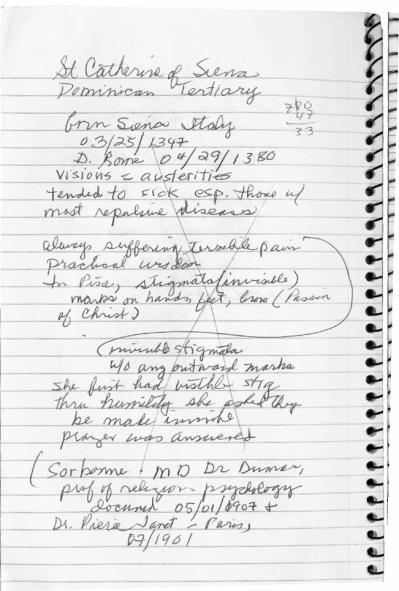 St Catherine of Siena
Dominican Tertiary
born Siena Italy
03/25/1347
D. Rome 04/29/1380
780
47
33
visions = austerities
tended to sick esp. those w/
most repulsive diseases
always suffering "terrible pain"
practical wisdom
In Pisa, stigmata (invisible)
marks on hands, feet, brow (Passion
of Christ)
(invisible stigmata
w/o any outward marks
she first had visible stig
thru humility she asked they
be made invisible
prayer was answered
(Sorbonne + MD Dr Dumas,
prof of religion psychology
document 05/01/0907 &
Dr. Pierre Janet - Paris,
07/1901